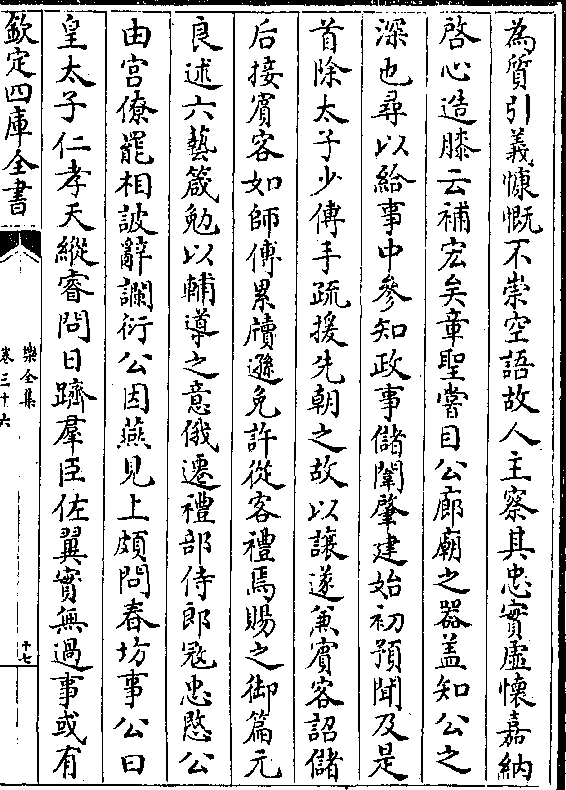 為質引義慷慨不崇空語故人主察其忠實虛懷嘉納
啓心造膝云補宏矣章聖嘗目公廊廟之器盖知公之
深也尋以給事中參知政事儲闈肇建始初預聞及是
首除太子少傅手疏援先朝之故以讓遂兼賓客詔儲
后接賓客如師傅累牘遜免許從客禮焉賜之御篇元
良述六藝箴勉以輔導之意俄遷禮部侍郎冦忠愍公
由宫僚罷相詖辭讕衍公因燕見上頗問春坊事公曰
皇太子仁孝天縱睿問日躋羣臣佐翼實無過事或有
欽定四庫全書
樂全集
卷三十六
十七